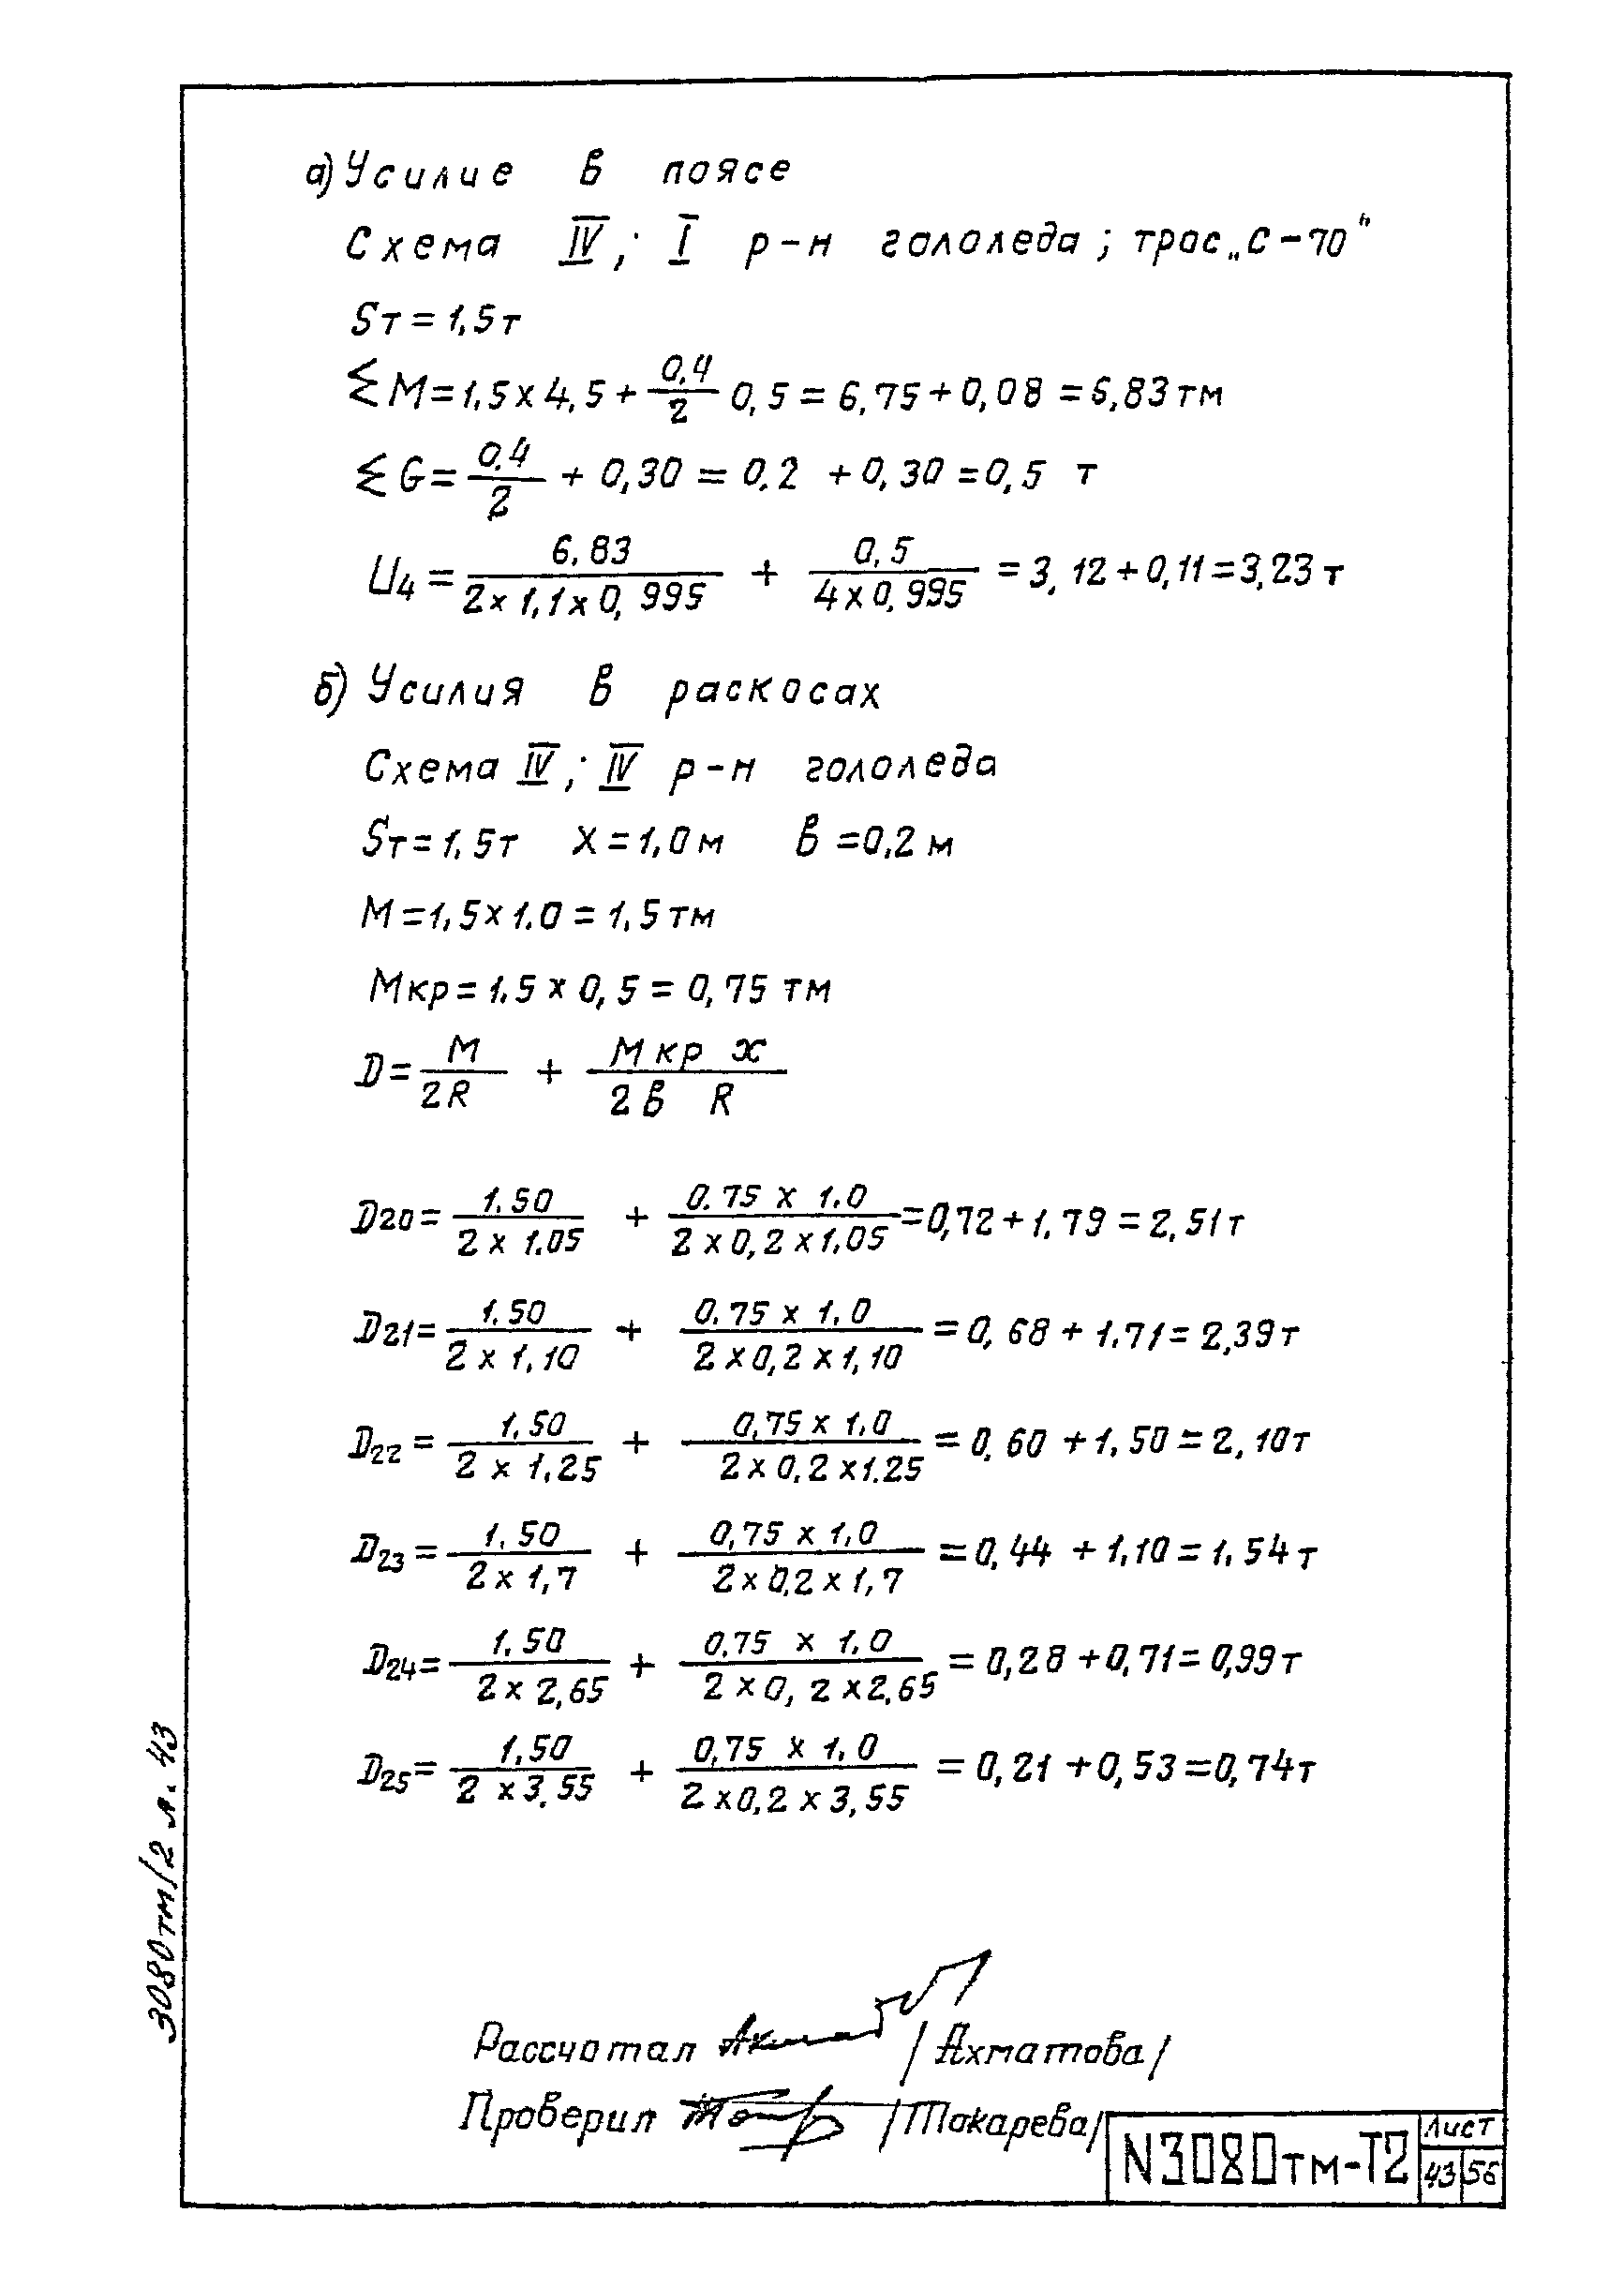 а) Усилие в поясе
Схема IV; I р-н гололеда; трос „С-70"
Sт = 1,5т
∑ M = 1,5 x 4,5 + 0,4/2 0,5 = 6,75 + 0,08 = 6,83 тм
∑ G = 0.4/2 + 0,30 = 0.2 + 0,30 = 0,5 т
U4 = 6,83/(2 x 1,1 x 0,995) + 0,5/(4 x 0,995) = 3,12 + 0,11 = 3,23 т
б) Усилия в раскосах
Схема IV; IV р-н гололеда
Sт = 1,5т X = 1,0 м в = 0,2 м
M = 1,5 x 1.0 = 1,5 тм
Мкр = 1.5 x 0,5 = 0,75 тм
D = M/2R + Мкр x/2в R
D20 = 1.50/(2 x 1.05) + (0.75 x 1.0)/(2 x 0,2 x 1,05) = 0,72 + 1.79 = 2,51т
D21 = 1.50/(2 x 1,10) + (0.75 x 1,0)/(2 x 0,2 x 1,10) = 0,68 + 1.71 = 2,39т
D22 = 1,50/(2 x 1,25) + (0,75 x 1,0)/(2 x 0,2 x 1.25) = 0,60 + 1,50 = 2,10т
D23 = 1,50/(2 x 1,7) + (0,75 x 1,0)/(2 x 0,2 x 1,7) = 0,44 + 1,10 = 1,54 т
D24 = 1,50/(2 x 2,65) + (0,75 x 1,0)/(2 x 0,2 x 2,65) = 0,28 + 0,71 = 0,99 т
D25 = 1,50/(2 x 3.55) + (0,75 x 1,0)/(2 x 0.2 x 3,55) = 0,21 + 0,53 = 0,74т
3080тм/2 л. 43
Рассчотал /Ахматова/
Проверил /Токарева/
N3080тм-Т2
Лист
43 56